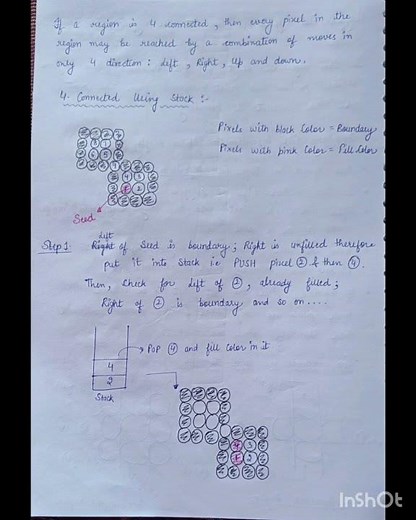 If a region is 4 connected, then every pixel in the
region may be reached by a combination of moves in
only 4 direction: left, Right, Up and down.
4. Connected Using Stack :-
Pixels with black Color = Boundary
Pixels with pink Color = Fill Color
Seed
left
Step 1 Right of Seed is boundary; Right is unfilled therefore
put it into Stack i.e PUSH pixel 2 & then 4.
Then, check for left of 2, already filled;
Right of 2 is boundary and so on....
POP 4 and fill Color in it
4
2
Stack
InShOt